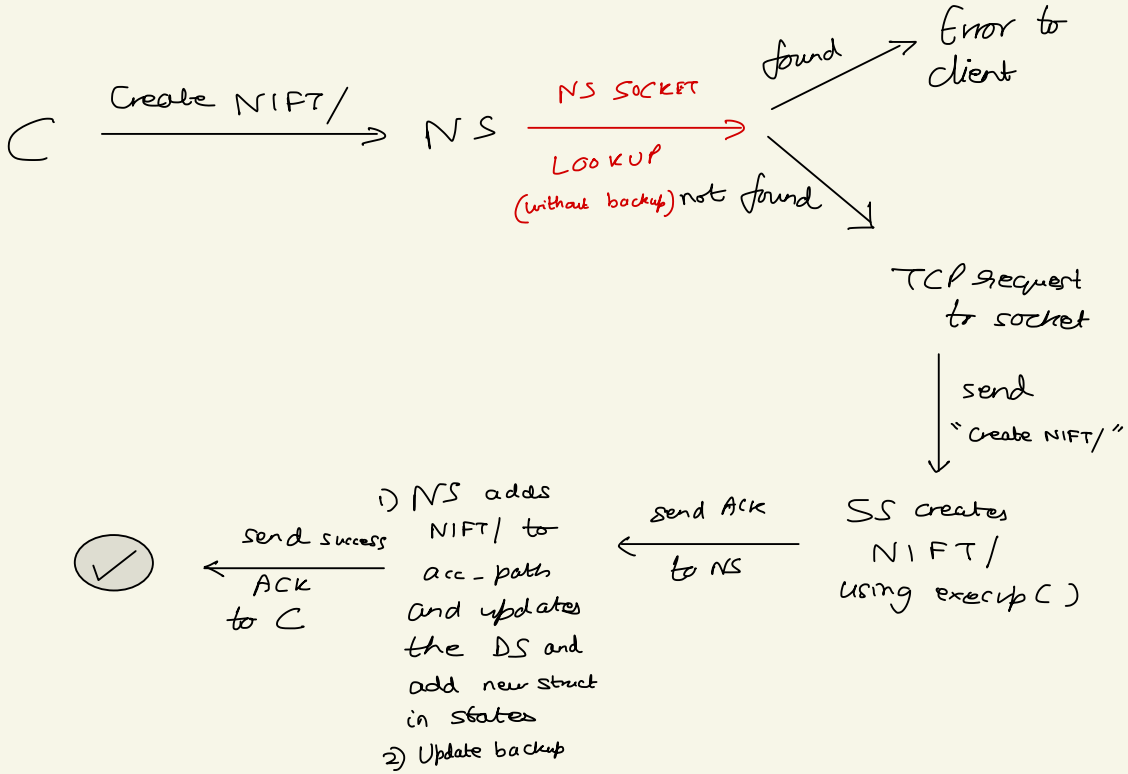 C
Create NIFT/
NS
NS SOCKET
LOOKUP
(without backup)
found
Error to
client
not found
TCP request
to socket
send
"Create NIFT/"
SS creates
NIFT/
using execvp()
send ACK
to NS
1) NS adds
NIFT/ to
acc_path
and updates
the DS and
add new struct
in states
2) Update backup
send success
ACK
to C